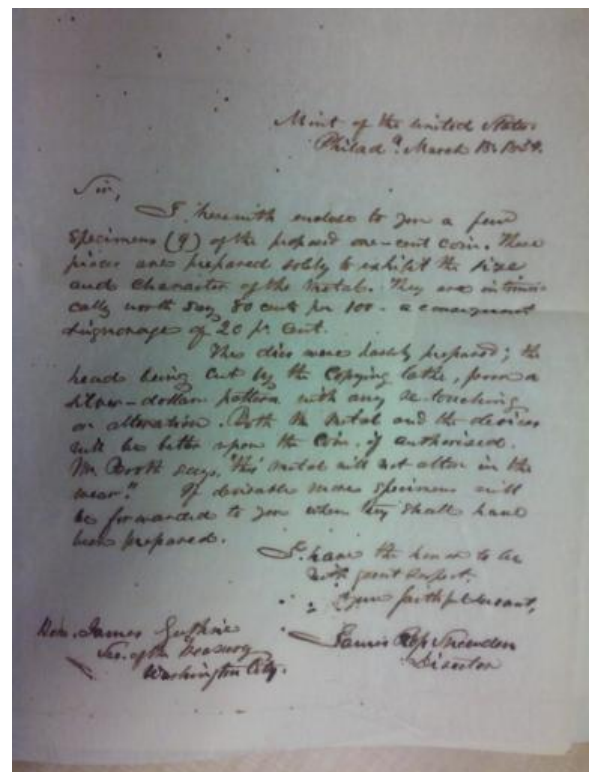 Mint of the United States
Philad.ª March 18. 1854.
Sir,
I herewith enclose to you a few
specimens (9) of the proposed one-cent coin. These
pieces are prepared solely to exhibit the size
and character of the metal. They are intrinsi-
cally worth say 80 cents per 100 - a consequent
seignorage of 20 pr Cent.
The dies were hastily prepared; the
head being cut by the copying lathe, from a
silver-dollar pattern with any re-touching
or alteration. Both the metal and the devices
will be better upon the Coin, if authorised.
Mr. Booth says, "this metal will not alter in the
wear." If desirable more specimens will
be forwarded to you when they shall have
been prepared.
I have the honor to be
with great respect,
Your faithful servant,
James Ross Snowden
Director
Hon. James Guthrie
Sec. of the Treasury
Washington City.